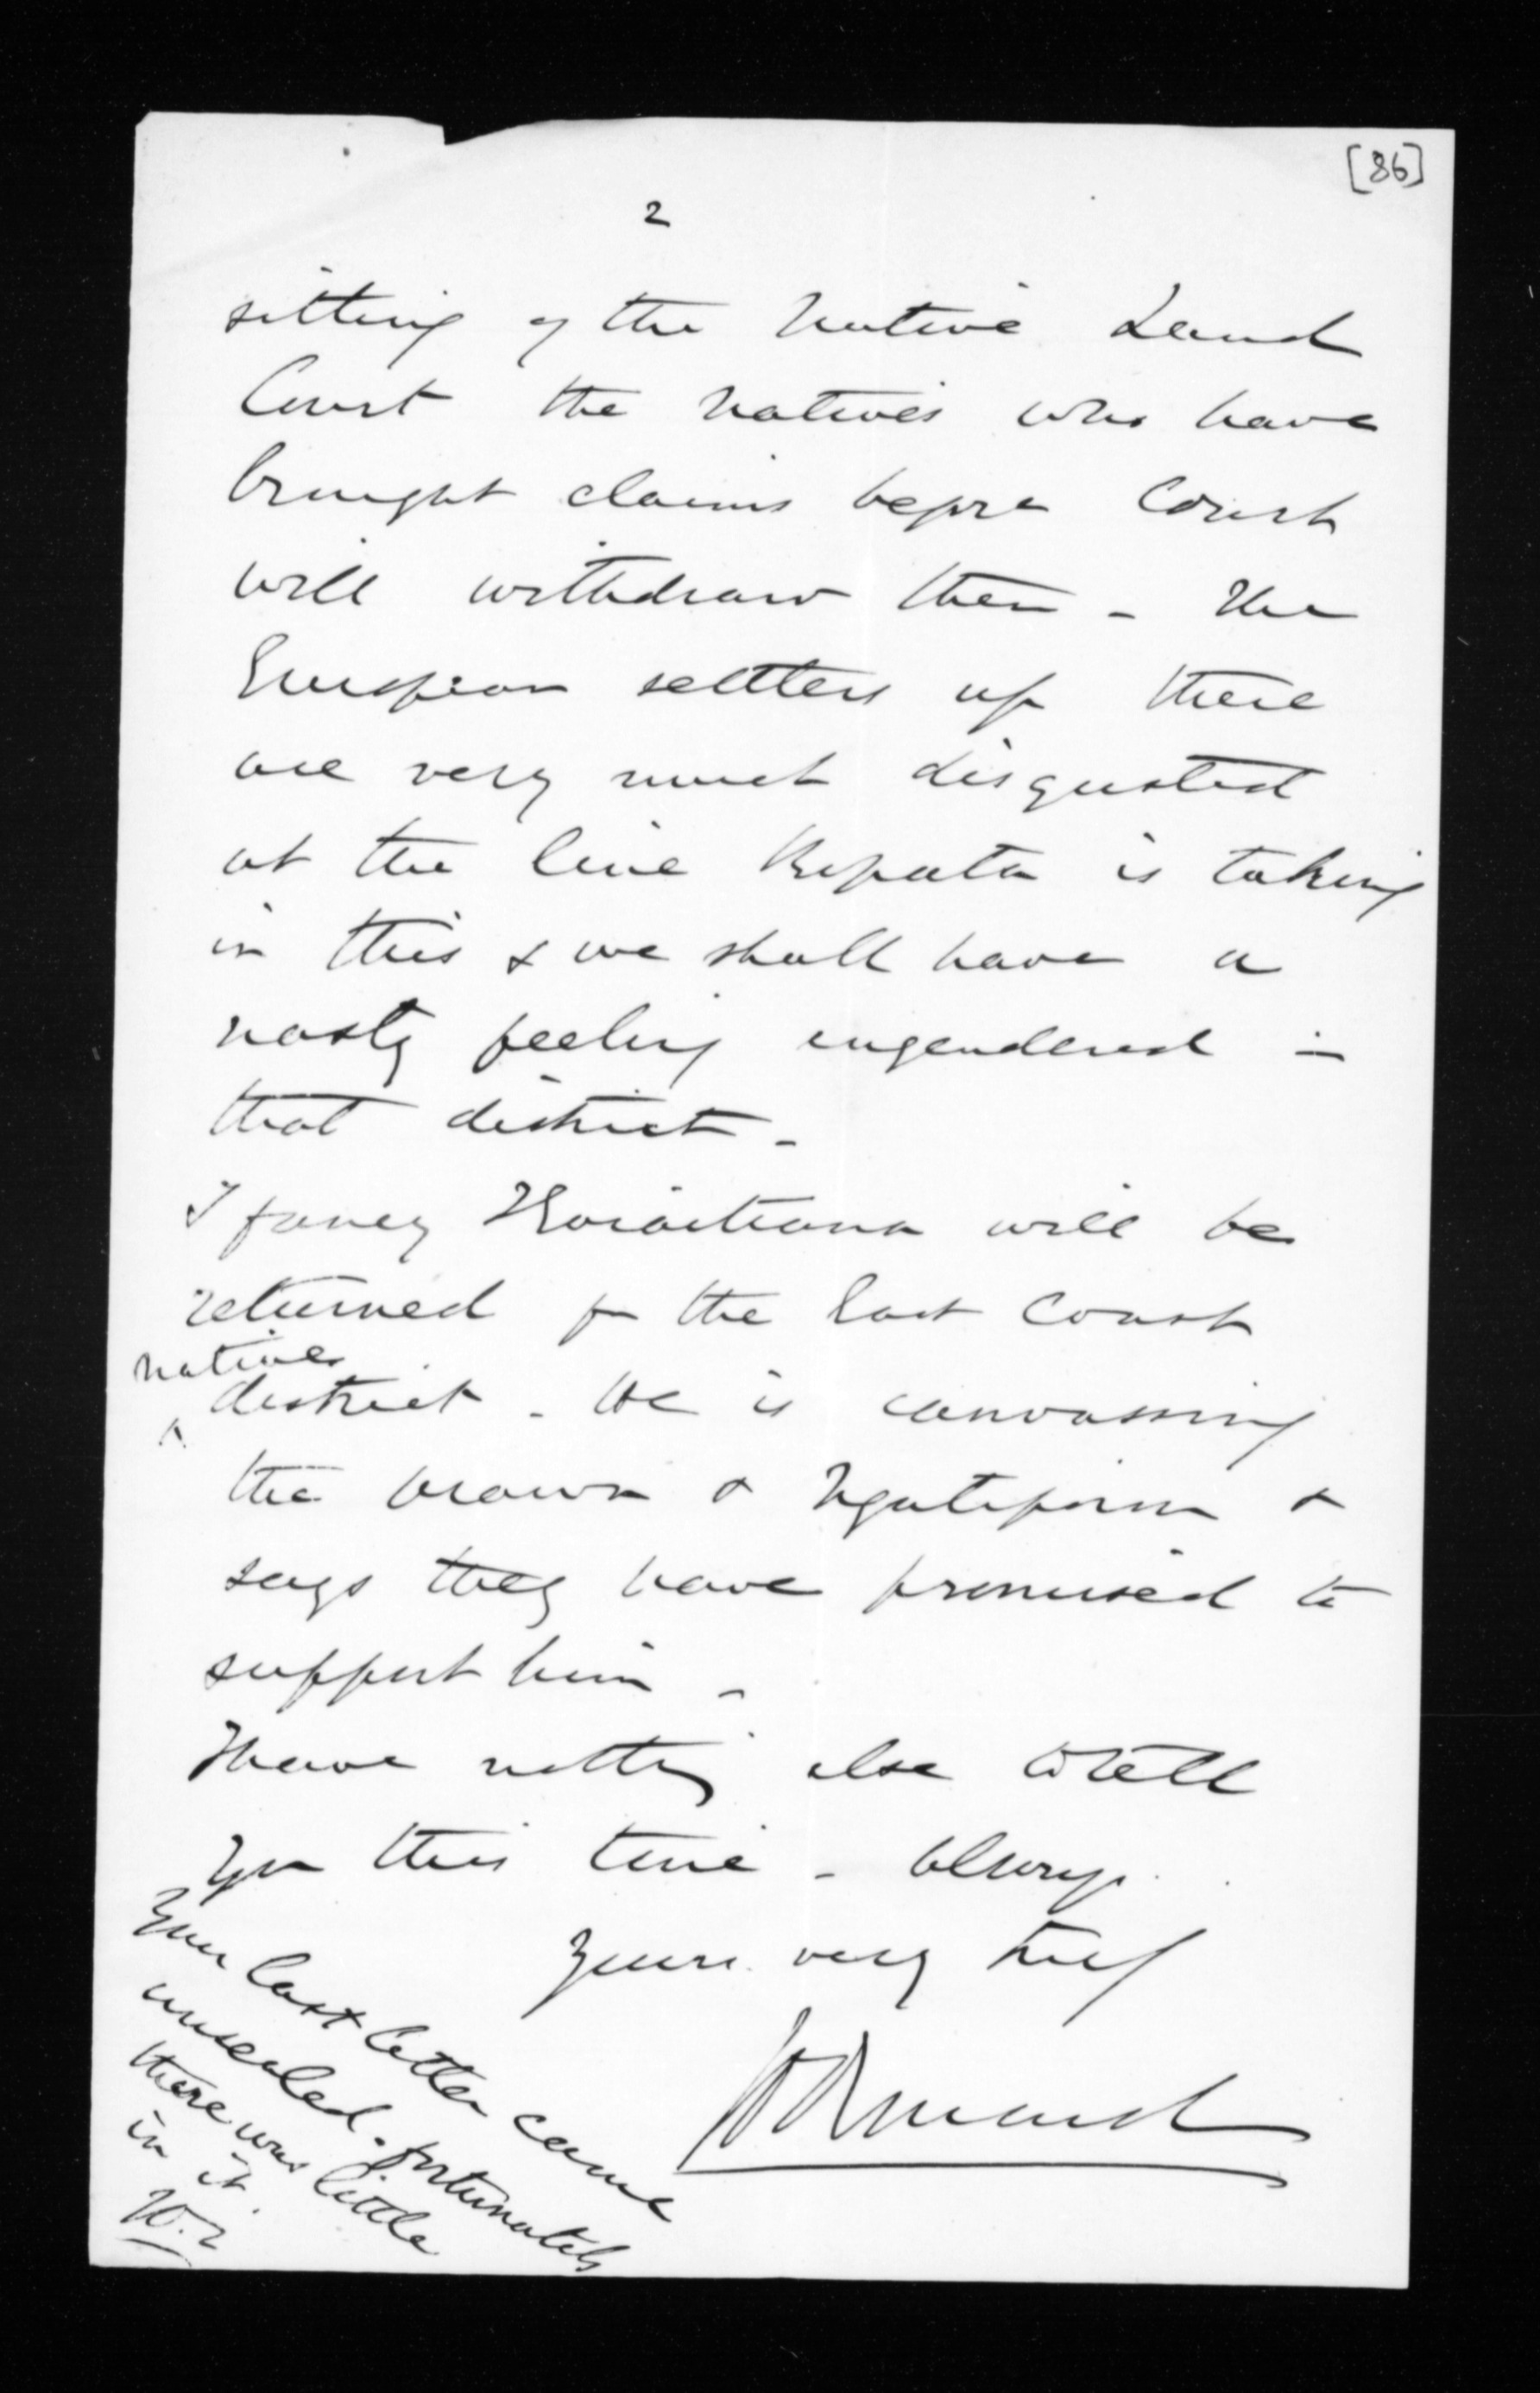 [86]
2
sitting of the Native Land
Court the natives who have
brought claims before Court
will withdraw them - The
European settlers up there
are very much disgusted
at the line Ropata is taking
in this & we shall have a
nasty feeling engendered in
that district -
I fancy Karaitiana will be
returned for the East Coast
native
district - He is canvassing
the & Ngatiporou &
says they have promised to
support him -
I have nothing else to tell
you this time - Always
Yours very truly
Your last letter came
unsealed - fortunately
there was little
in it.